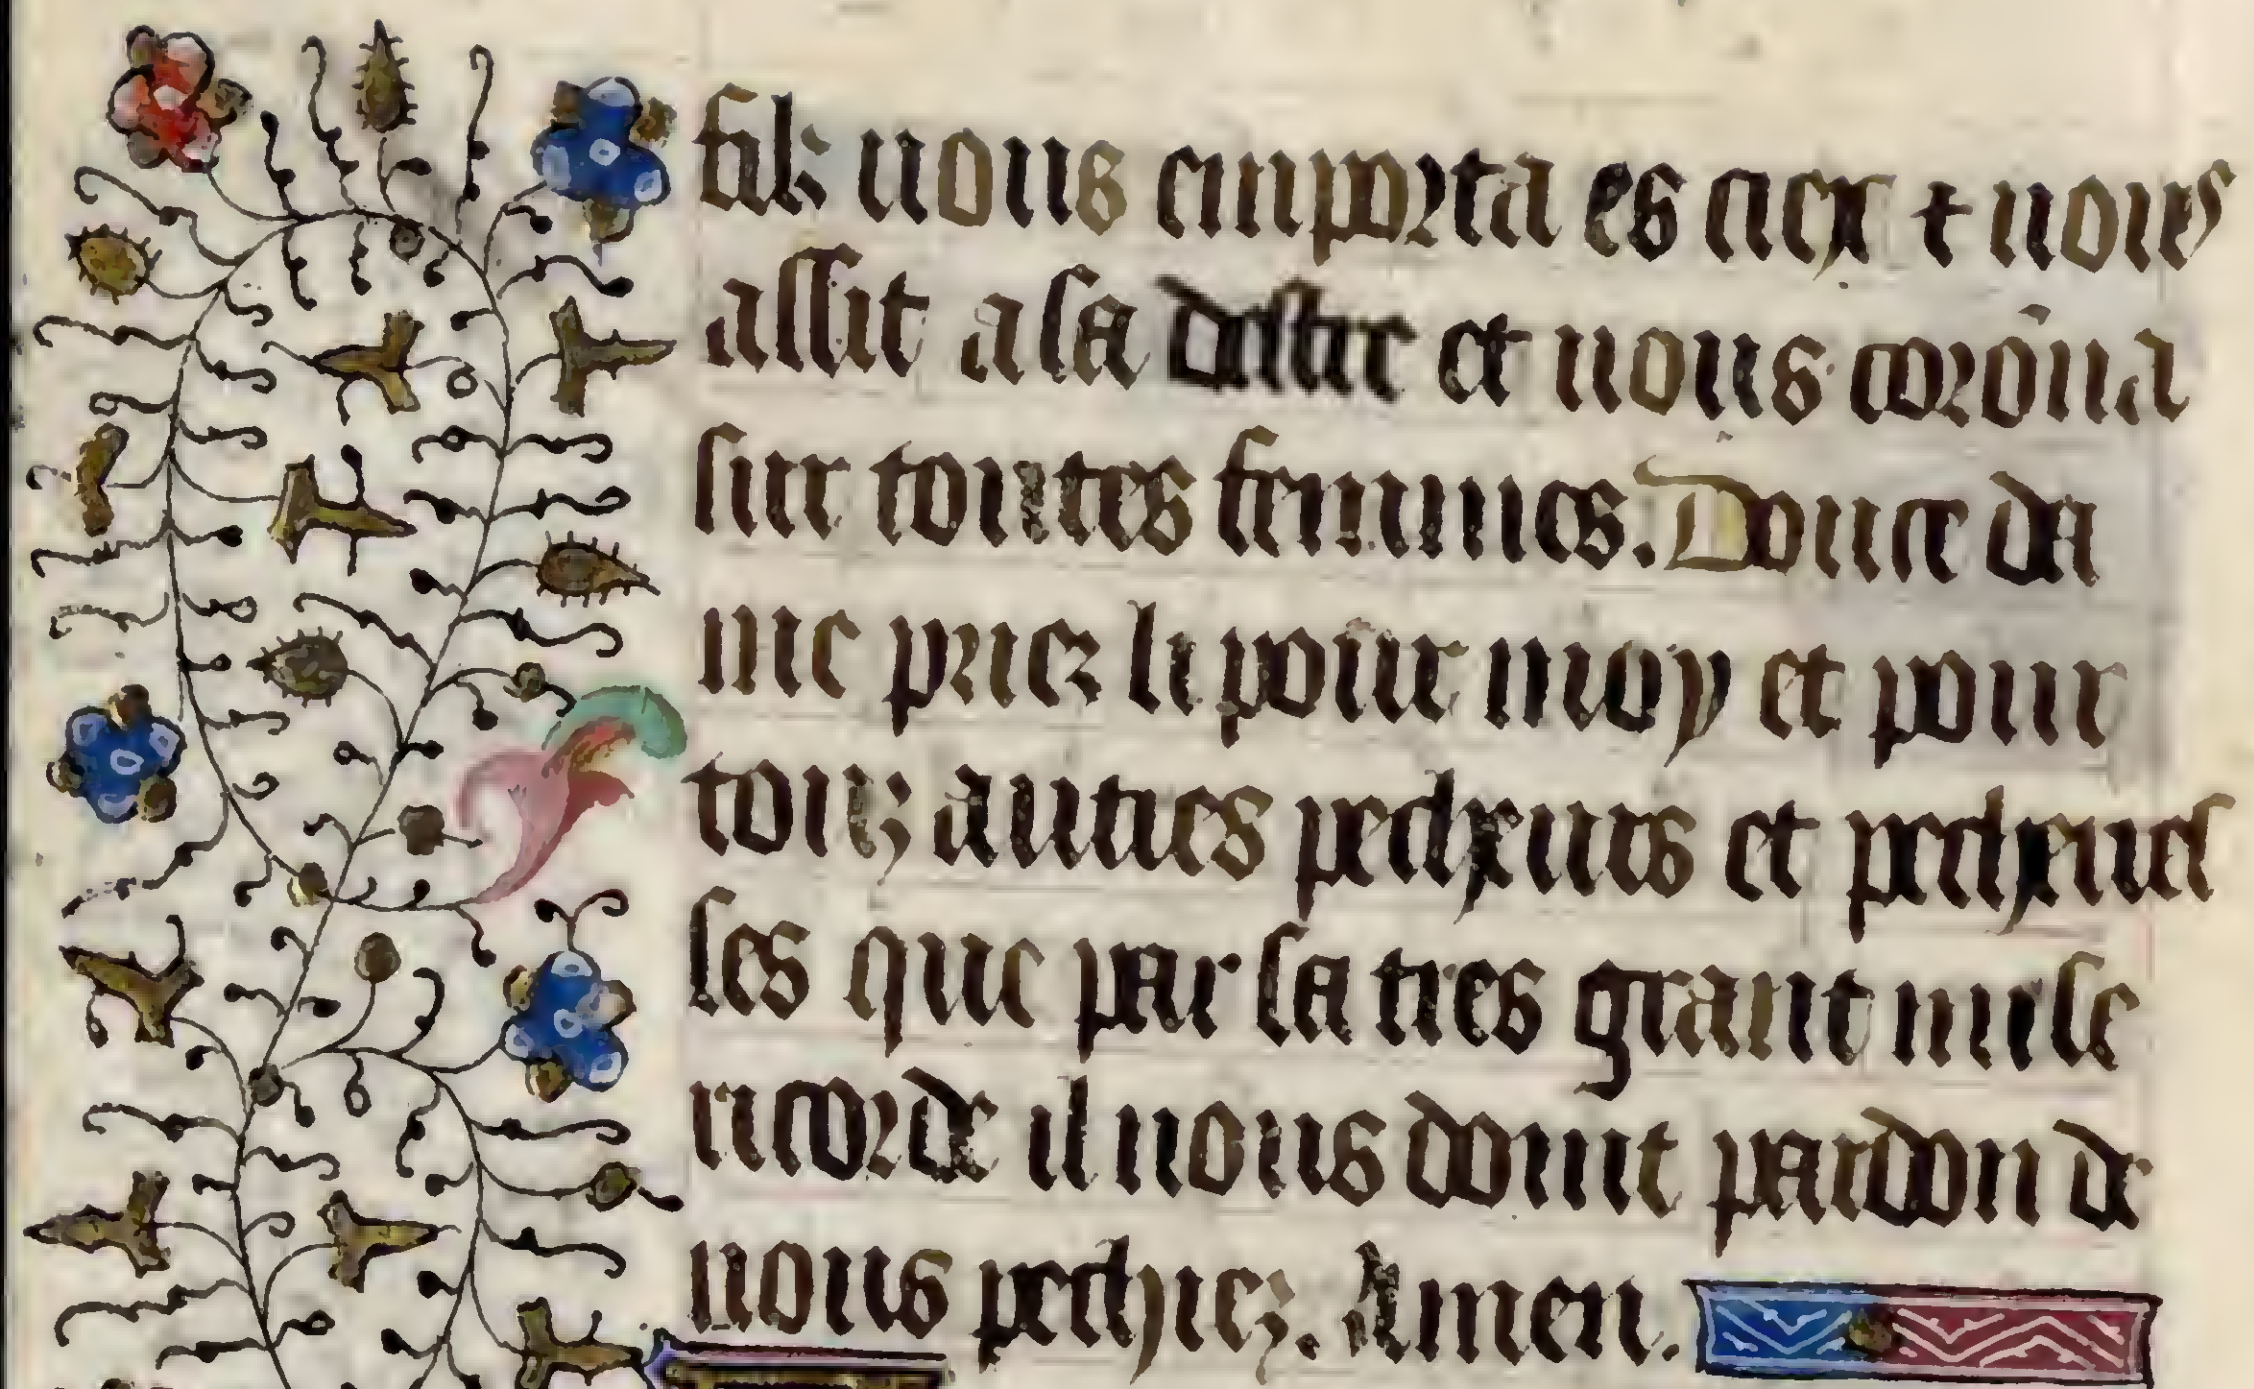 filz uous emporta es ciex ⁊ uous
assit a sa destre et uous corōna
sur toutes femmes. Douce da
me priez li pour moy et pour
touz autres pecheurs et pecheref
ses que par sa tres grant mise
ricorde il nous doint pardon de
nous pechiez. Amen.